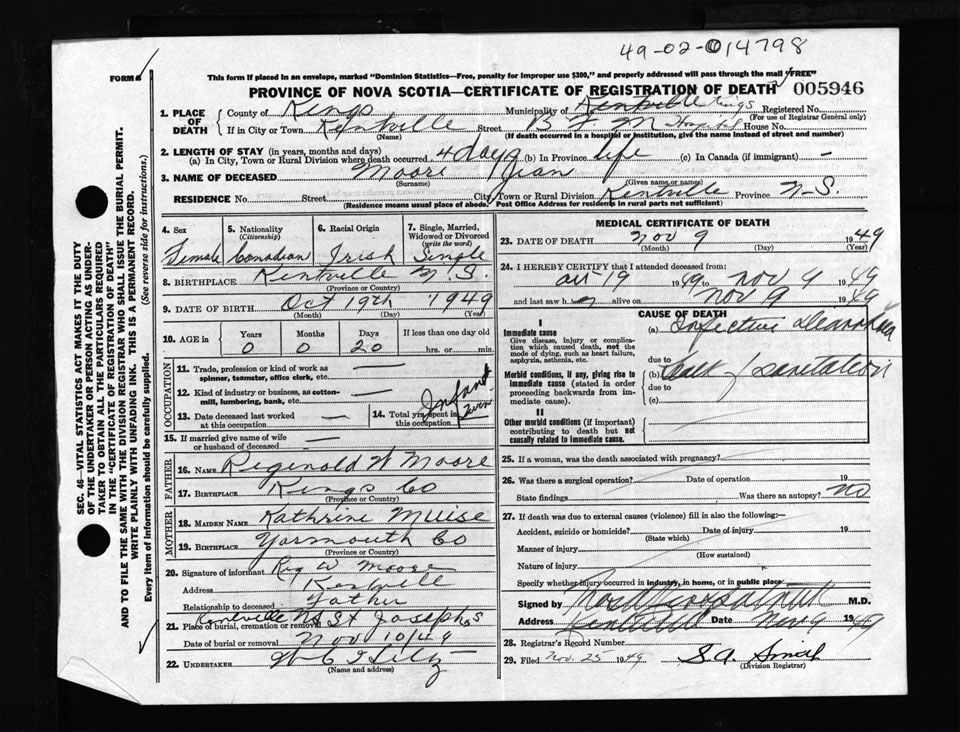 49-02-014798
FORM
This form if placed in an envelope, marked "Dominion Statistics—Free, penalty for improper use $300," and properly addressed will pass through the mail "FREE"
PROVINCE OF NOVA SCOTIA—CERTIFICATE OF REGISTRATION OF DEATH 005946
1. PLACE OF DEATH
County of Kings Municipality of Kentville Kings Registered No.
(For use of Registrar General only)
If in City or Town Kentville Street B F M Hospital House No.
(Name) (If death occurred in a hospital or institution, give the name instead of street and number)
2. LENGTH OF STAY (in years, months and days)
(a) In City, Town or Rural Division where death occurred 4 days (b) In Province life (c) In Canada (if immigrant) —
3. NAME OF DECEASED Moore Jean
(Surname) (Given name or names)
RESIDENCE No. Street City, Town or Rural Division Kentville Province N-S.
(Residence means usual place of abode. Post Office Address for residents in rural parts not sufficient)
4. Sex
Female
5. Nationality
(Citizenship)
Canadian
6. Racial Origin
Irish
7. Single, Married, Widowed or Divorced
(write the word)
Single
8. BIRTHPLACE Kentville N.S.
(Province or Country)
9. DATE OF BIRTH Oct 19th 1949
(Month) (Day) (Year)
10. AGE in
Years Months Days If less than one day old
0 0 20 hrs. or min.
OCCUPATION
11. Trade, profession or kind of work as spinner, teamster, office clerk, etc. —
12. Kind of industry or business, as cotton-mill, lumbering, bank, etc. —
13. Date deceased last worked at this occupation —
14. Total yrs. spent in this occupation
Infant
Twin
15. If married give name of wife or husband of deceased —
FATHER
16. NAME Reginold W Moore
17. BIRTHPLACE Kings Co
(Province or Country)
MOTHER
18. MAIDEN NAME Kathrine Muise
19. BIRTHPLACE Yarmouth Co
(Province or Country)
20. Signature of informant Reg W Moore
Address Kentville
Relationship to deceased Father
21. Place of burial, cremation or removal Kentville NS St Josephs
Date of burial or removal Nov 10/49
22. UNDERTAKER
(Name and address)
MEDICAL CERTIFICATE OF DEATH
23. DATE OF DEATH Nov 9 1949
(Month) (Day) (Year)
24. I HEREBY CERTIFY that I attended deceased from:
Oct 19 1949 to Nov 9 1949
and last saw h alive on Nov 9 1949
CAUSE OF DEATH
I
Immediate cause
Give disease, injury or complication which caused death, not the mode of dying, such as heart failure, asphyxia, asthenia, etc.
(a) Infective diarrhoea
due to
Morbid conditions, if any, giving rise to immediate cause (stated in order proceeding backwards from immediate cause).
(b) Lack of sanitation
due to
(c)
II
Other morbid conditions (if important) contributing to death but not causally related to immediate cause.
25. If a woman, was the death associated with pregnancy?
26. Was there a surgical operation? Date of operation 19
State findings Was there an autopsy? no
27. If death was due to external causes (violence) fill in also the following:—
Accident, suicide or homicide? Date of injury 19
(State which)
Manner of injury
(How sustained)
Nature of injury
Specify whether injury occurred in industry, in home, or in public place
Signed by M.D.
Address Kentville Date Nov 9 1949
28. Registrar's Record Number
29. Filed Nov. 25 1949 S.A.
(Division Registrar)
SEC. 46—VITAL STATISTICS ACT MAKES IT THE DUTY
OF THE UNDERTAKER OR PERSON ACTING AS UNDER-
TAKER TO OBTAIN ALL THE PARTICULARS REQUIRED
IN THE "CERTIFICATE OF REGISTRATION OF DEATH"
AND TO FILE THE SAME WITH THE DIVISION REGISTRAR WHO SHALL ISSUE THE BURIAL PERMIT.
WRITE PLAINLY WITH UNFADING INK. THIS IS A PERMANENT RECORD.
Every item of information should be carefully supplied. (See reverse side for instructions.)